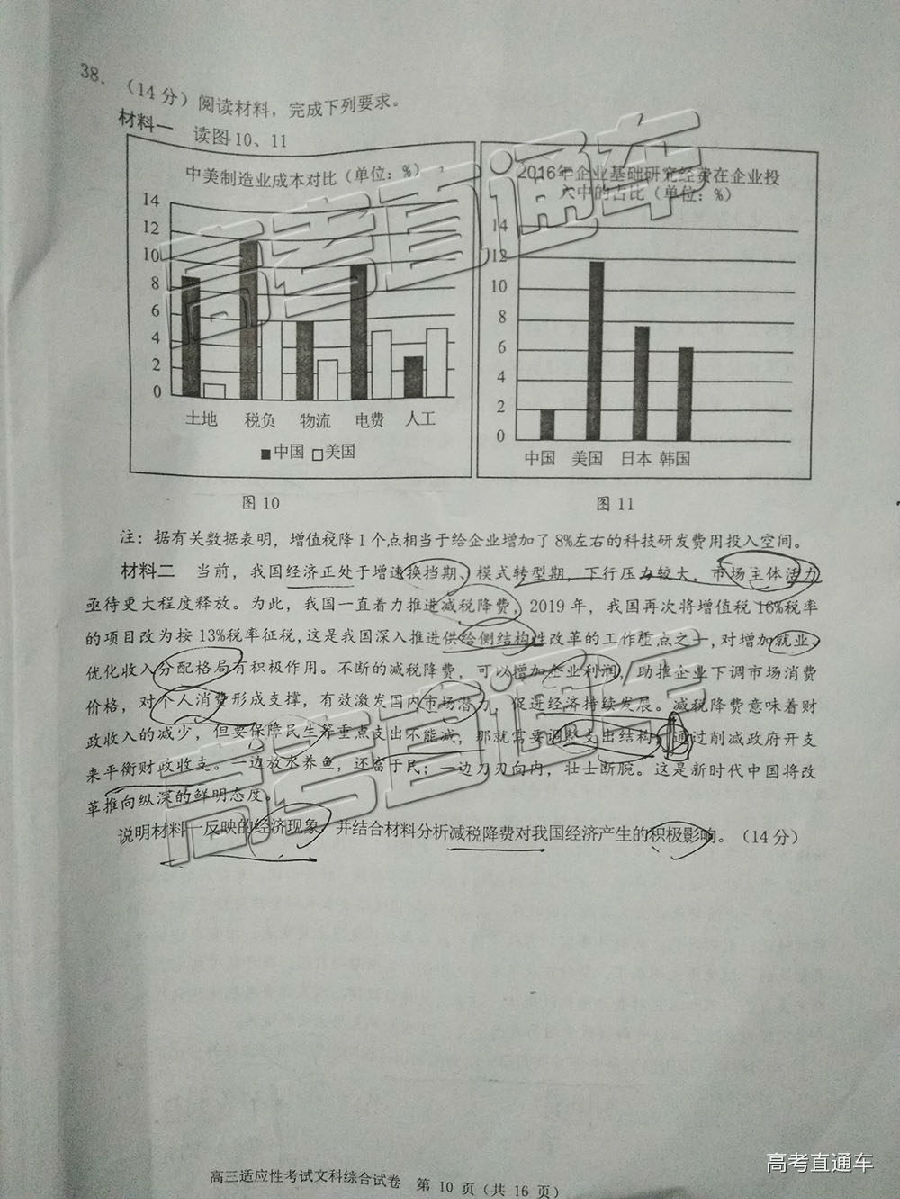 38.
(14分)阅读材料，完成下列要求。
材料一 读图10、11
中美制造业成本对比(单位：%)
14
12
10
8
6
4
2
0
土地 税负 物流 电费 人工
■中国 □美国
图10
2016年企业基础研究经费在企业投
入中的占比(单位：%)
14
12
10
8
6
4
2
0
中国 美国 日本 韩国
图11
注：据有关数据表明，增值税降1个点相当于给企业增加了8%左右的科技研发费用投入空间。
材料二 当前，我国经济正处于增速换挡期、模式转型期，下行压力较大，市场主体活力
亟待更大程度释放。为此，我国一直着力推进减税降费，2019年，我国再次将增值税16%税率
的项目改为按13%税率征税，这是我国深入推进供给侧结构性改革的工作重点之一，对增加就业，
优化收入分配格局有积极作用。不断的减税降费，可以增加企业利润，助推企业下调市场消费
价格，对个人消费形成支撑，有效激发国内市场潜力，促进经济持续发展。减税降费意味着财
政收入的减少，但要保障民生等重点支出不能减，那就需要调整支出结构，通过削减政府开支
来平衡财政收支。一边放水养鱼，还富于民；一边刀刃向内，壮士断腕。这是新时代中国将改
革推向纵深的鲜明态度。
说明材料一反映的经济现象，并结合材料分析减税降费对我国经济产生的积极影响。(14分)
高三适应性考试文科综合试卷 第 10 页(共 16 页)
高考直通车
高考直通车
高考直通车